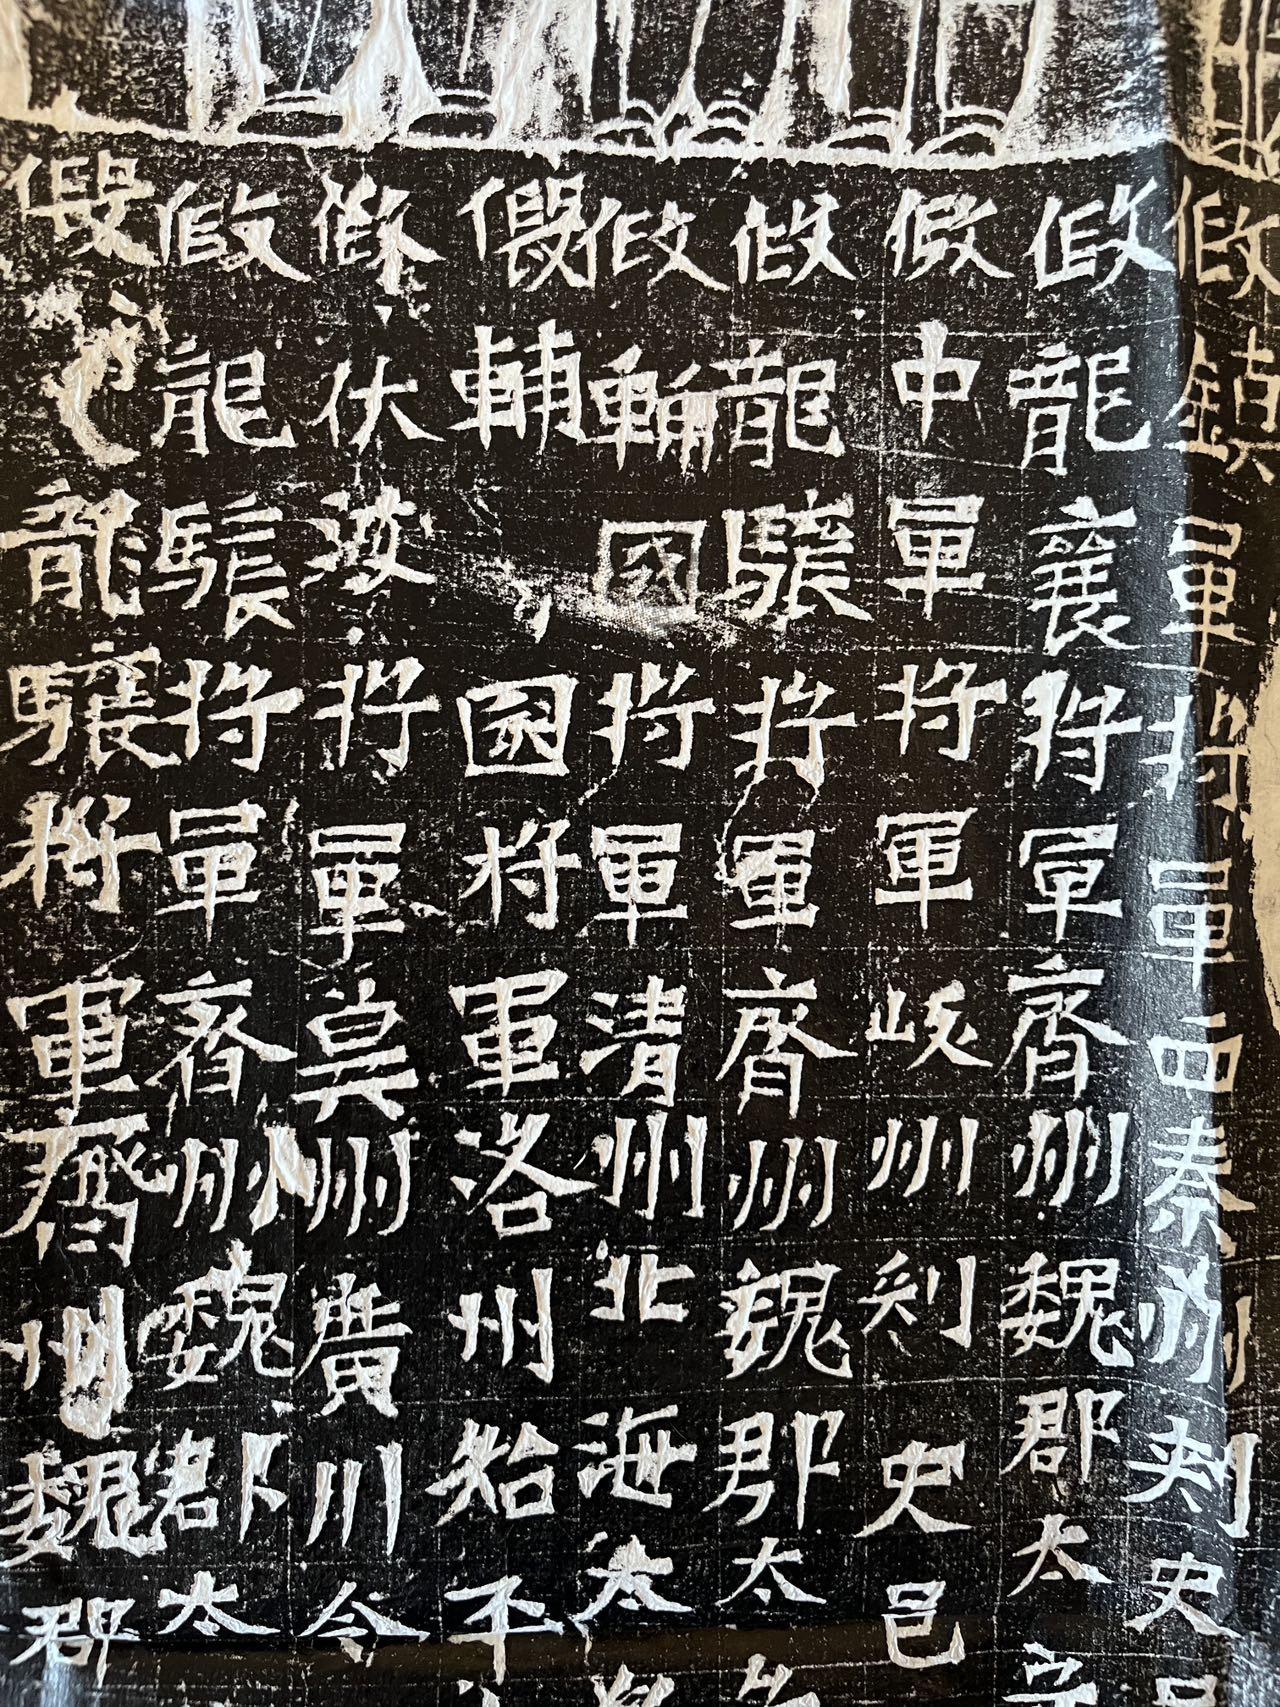 假鎮軍將軍西秦州刺史
假龍襄將軍齊州魏郡太守
假中軍將軍岐州刺史邑
假龍驤將軍齊州魏郡太
假輔國將軍清州北海太
假輔國將軍洛州始平
假伏波將軍冀州廣川令
假龍驤將軍齊州魏郡太
假龍驤將軍齊州魏郡